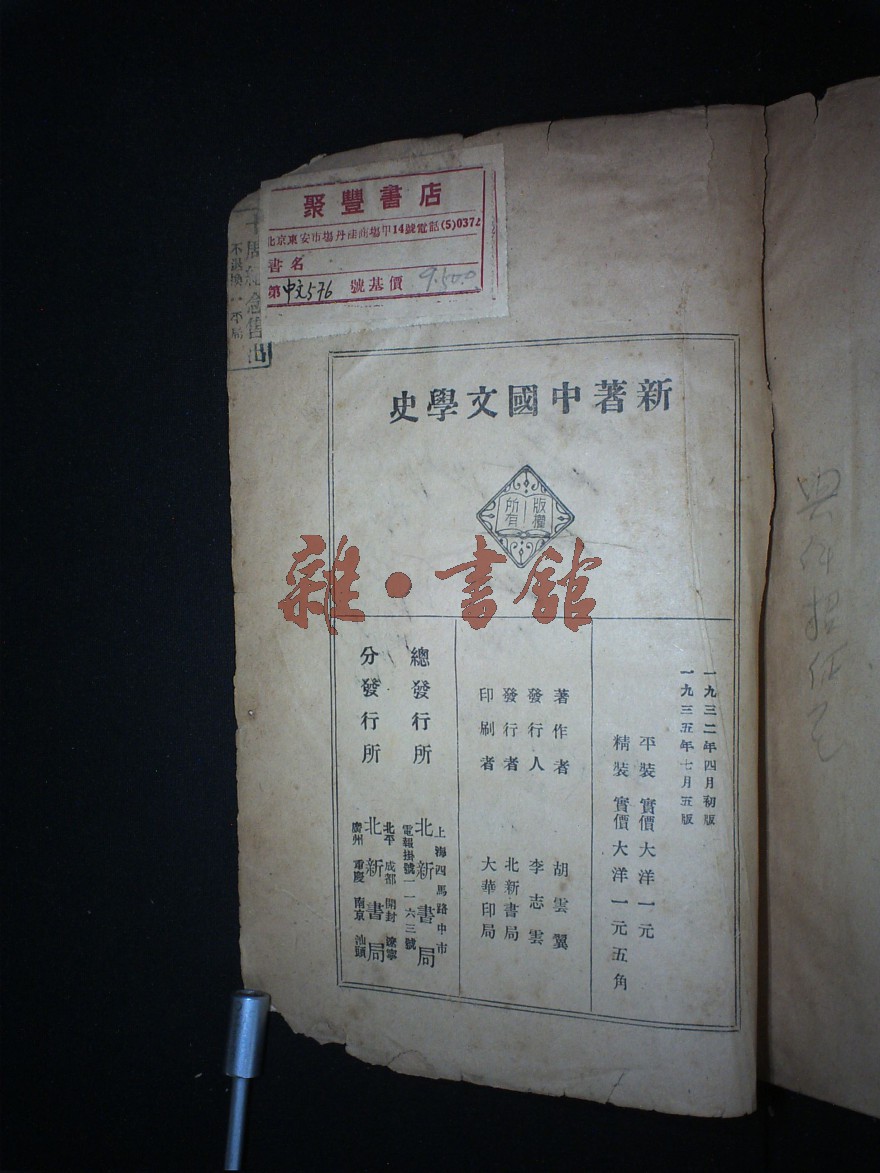 聚豐書店
北京東安市場丹桂商場甲14號電話(5)0372
書名
第中文576 號基價 9.500
不退換
新著中國文學史
版權
所有
雜·書館
一九三二年四月初版
一九三五年七月五版
平裝 實價大洋一元
精裝 實價大洋一元五角
著作者 胡雲翼
發行人 李志雲
發行者 北新書局
印刷者 大華印局
總發行所 上海四馬路中市
北新書局
電報掛號一一六三號
分發行所 北平 成都 開封 遼寧
北新書局
廣州 重慶 南京 汕頭